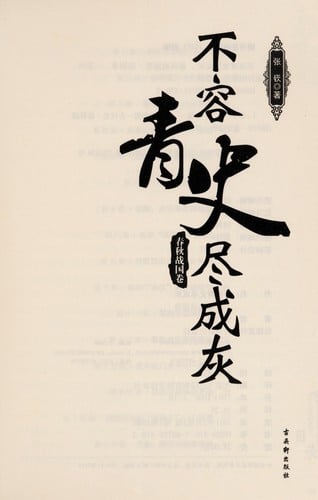 不容
青史
尽成灰
春秋战国卷
张嵚◎著
古吴轩出版社